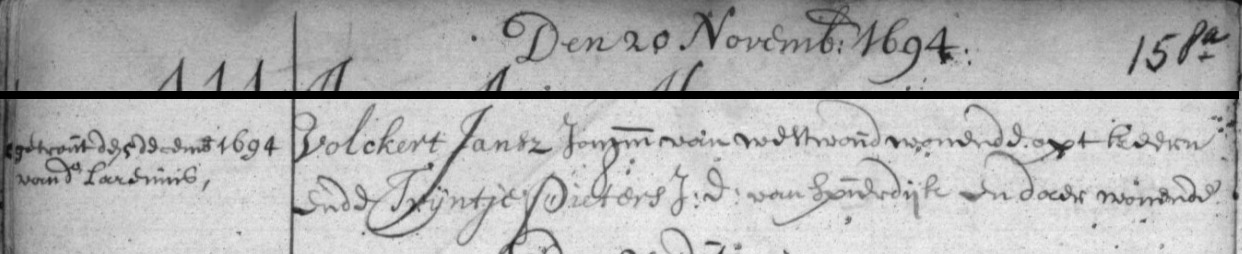 Den 20 Novemb: 1694.
158a
getrout de 5 decemb 1694
van ds Larenius,
Volckert Jansz Jongm van westwoud wonende opt keern
Ende Trijntje Pieters J: d: van Spierdijk en daer wonende